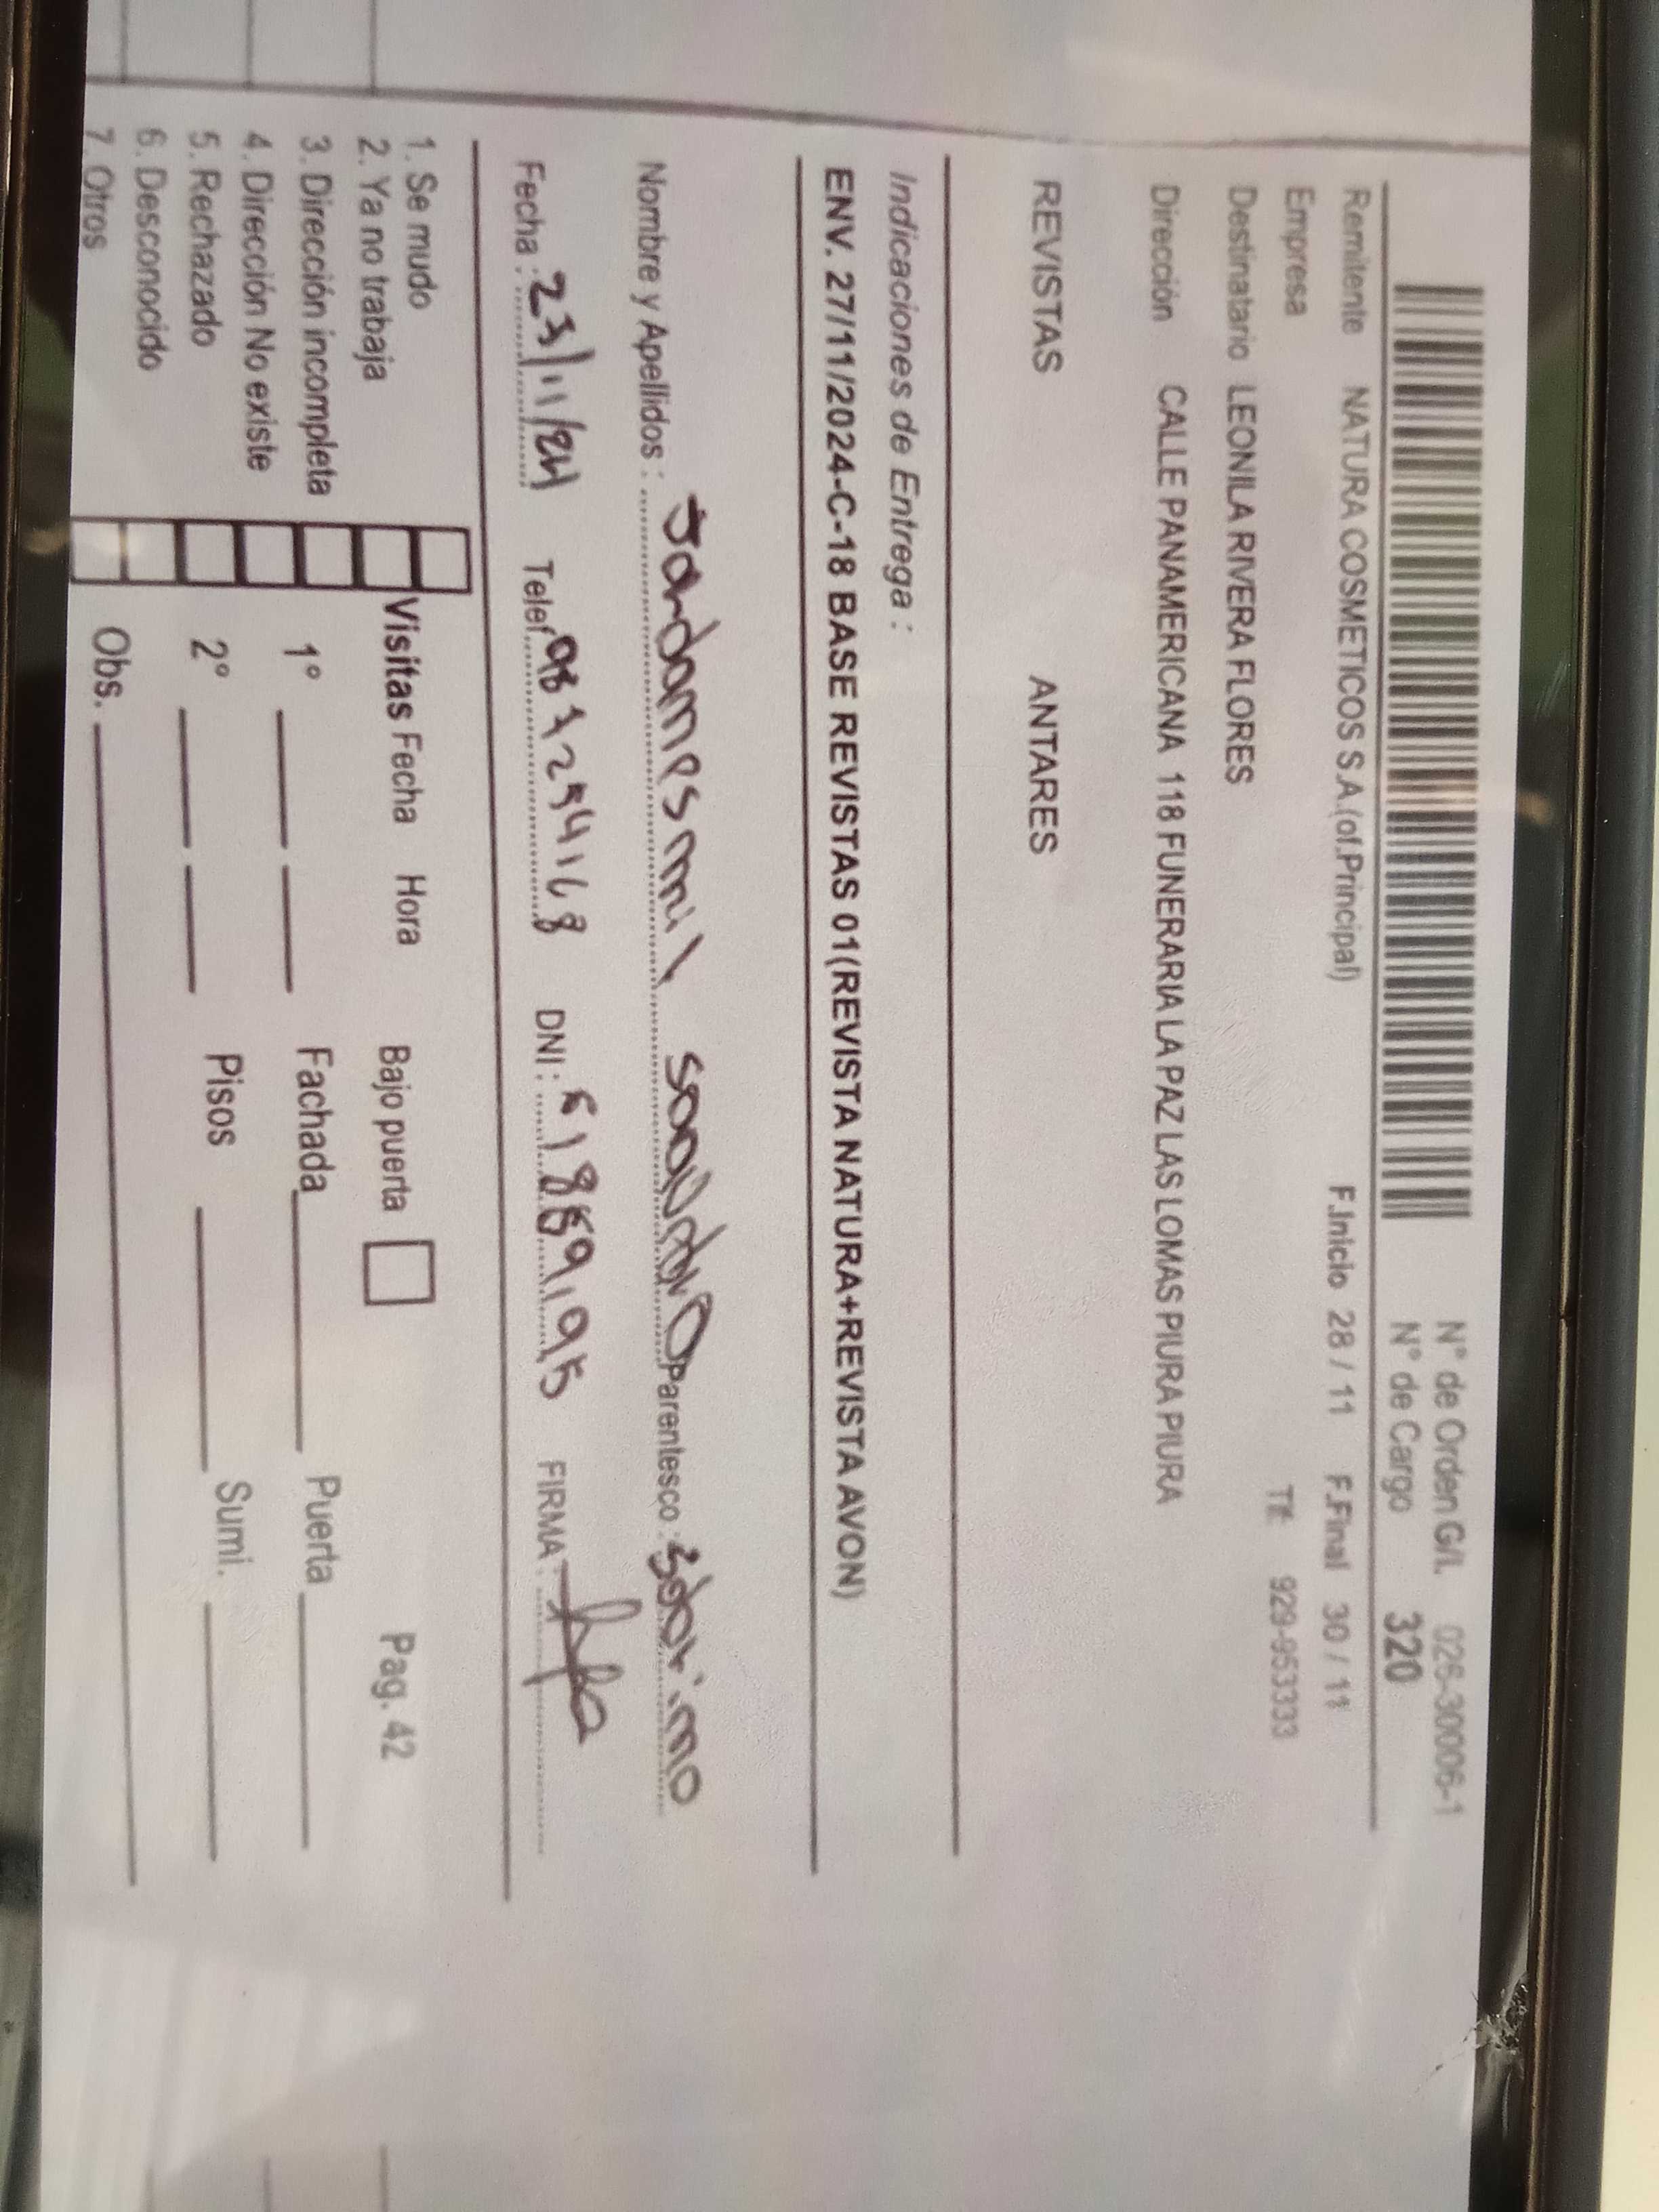 N° de Orden G/L 026-30006-1
N° de Cargo 320
Remitente NATURA COSMETICOS S.A.(of.Principal) F.Inicio 28 / 11 F.Final 30 / 11
Empresa Tlf. 929-953333
Destinatario LEONILA RIVERA FLORES
Dirección CALLE PANAMERICANA 118 FUNERARIA LA PAZ LAS LOMAS PIURA PIURA
REVISTAS ANTARES
Indicaciones de Entrega :
ENV. 27/11/2024-C-18 BASE REVISTAS 01(REVISTA NATURA+REVISTA AVON)
Nombre y Apellidos : Parentesco :
Fecha : Telef. DNI : FIRMA :
1. Se mudo
2. Ya no trabaja Visitas Fecha Hora Bajo puerta Pag. 42
3. Dirección incompleta
4. Dirección No existe 1° Fachada Puerta
5. Rechazado 2° Pisos Sumi.
6. Desconocido
7. Otros Obs.